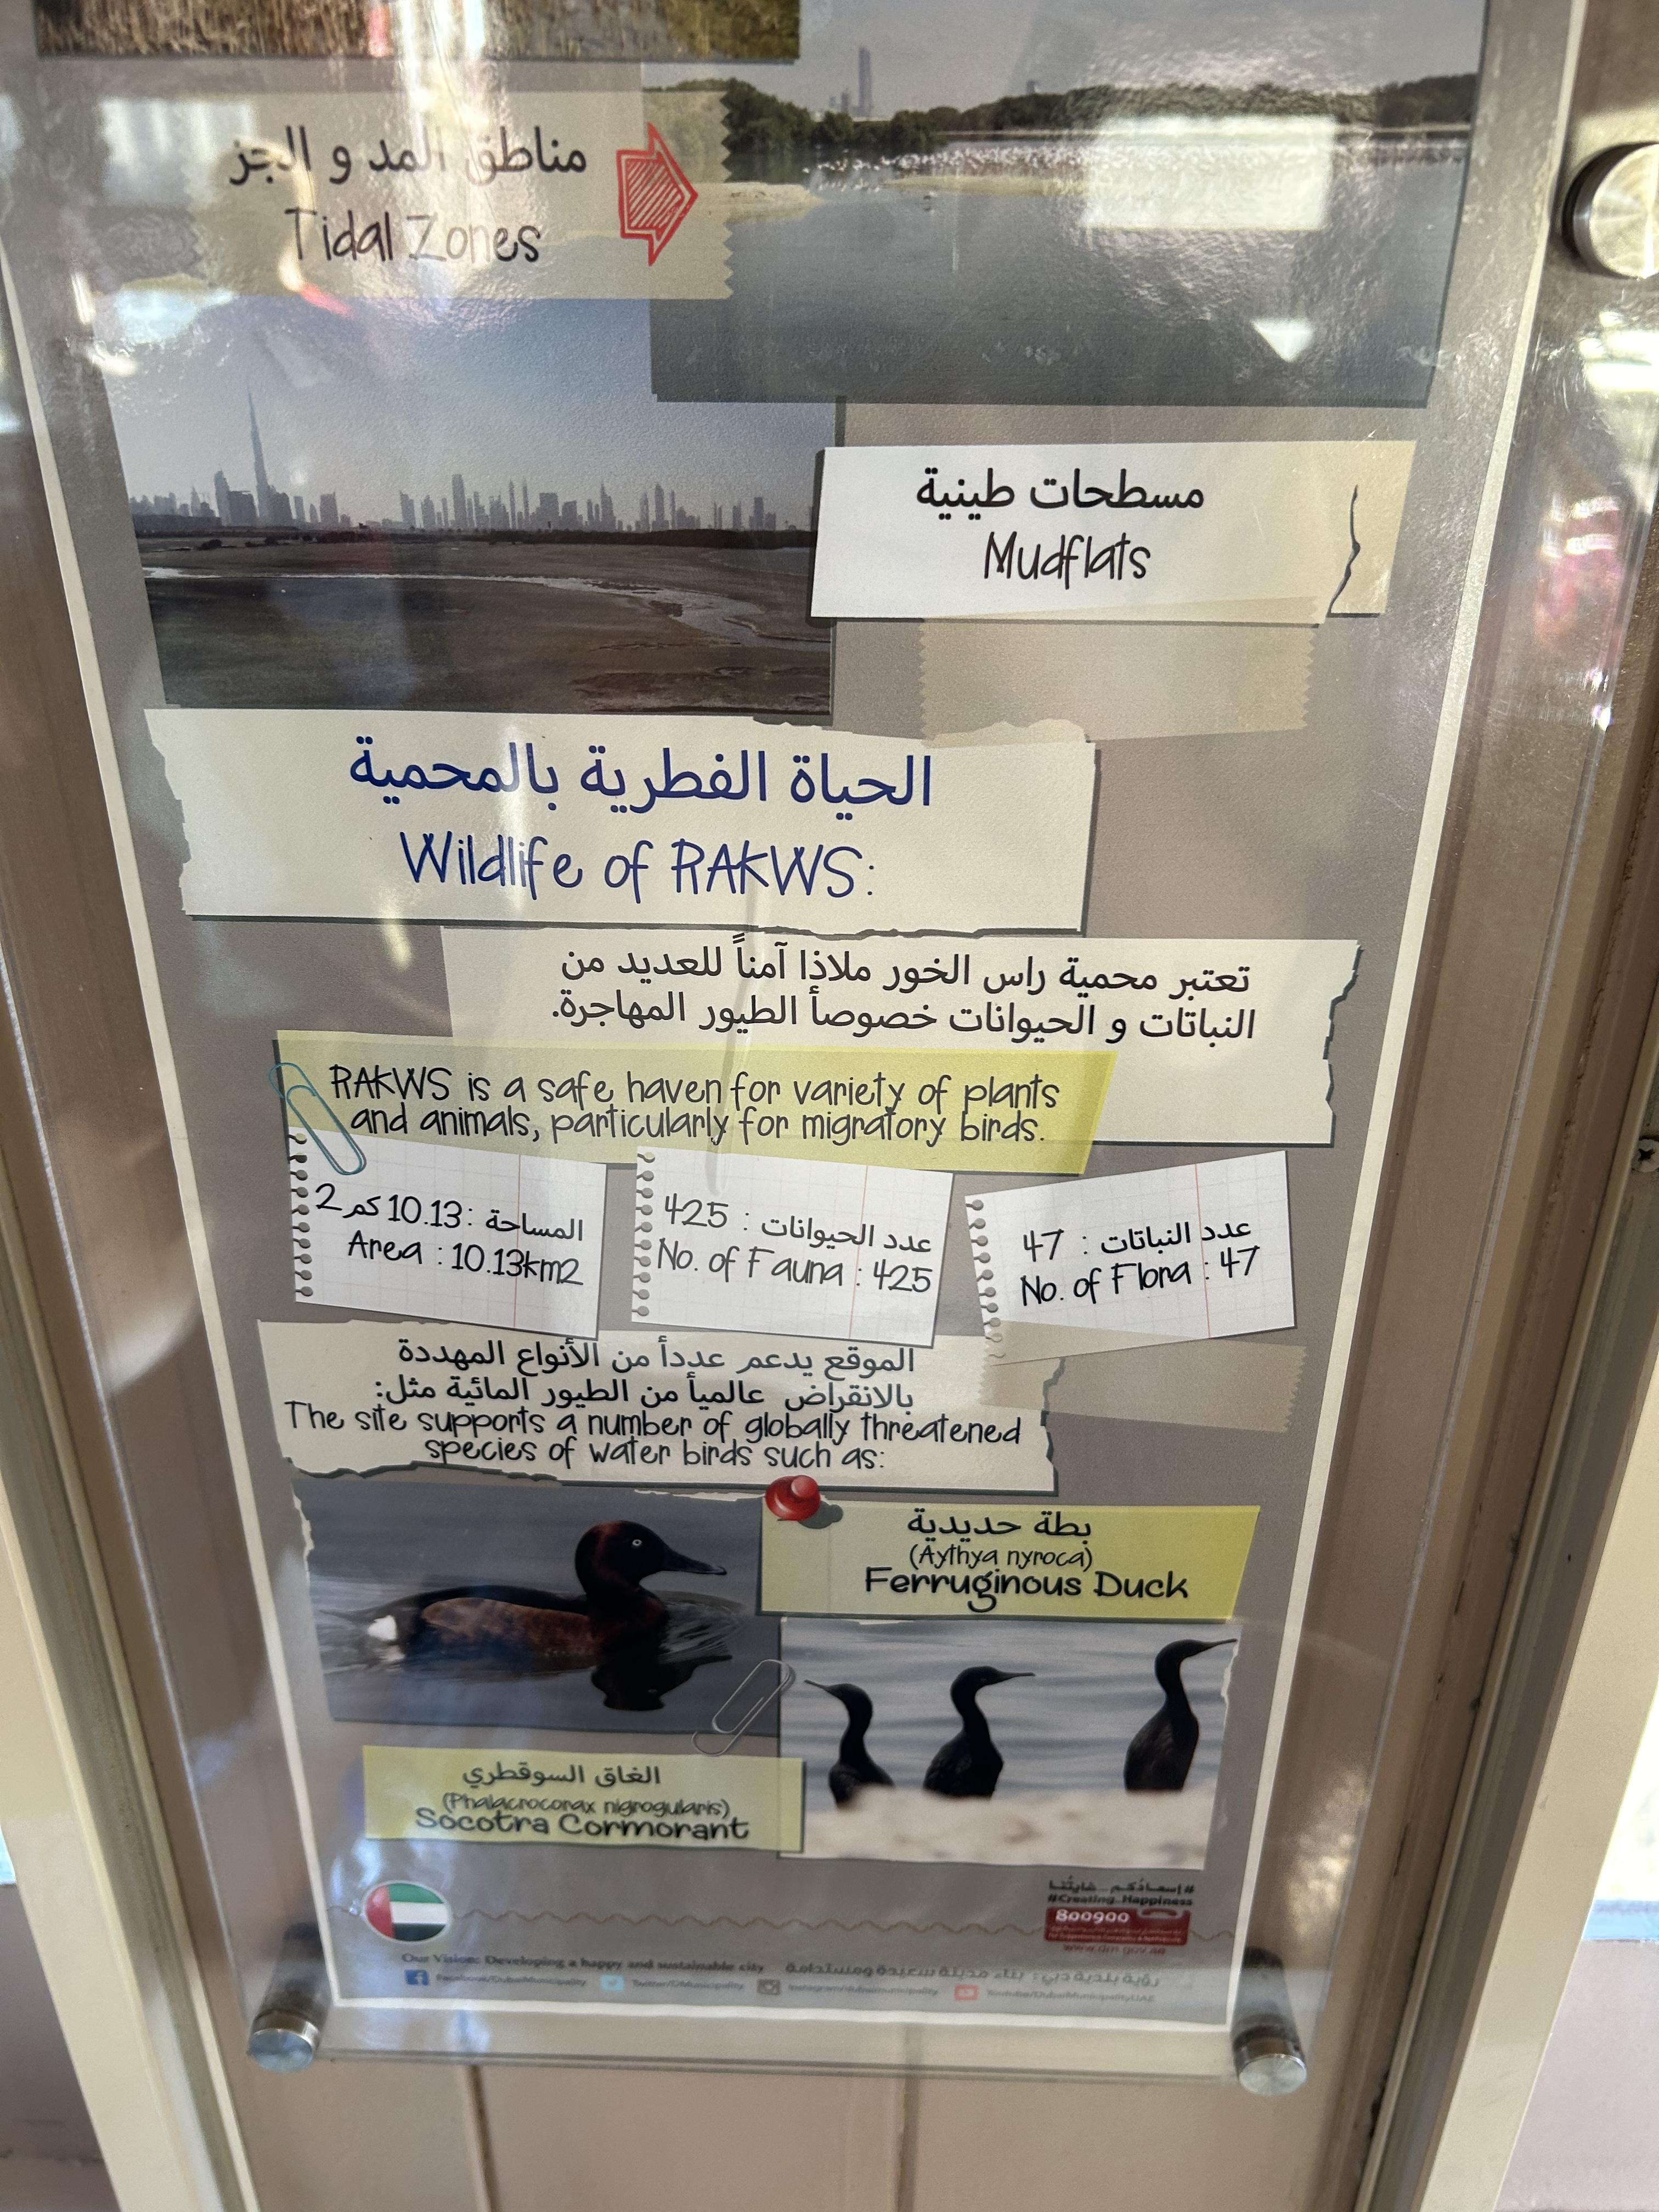 مناطق المد و الجزر
Tidal Zones
مسطحات طينية
Mudflats
الحياة الفطرية بالمحمية
Wildlife of RAKWS:
تعتبر محمية راس الخور ملاذا آمناً للعديد من
النباتات و الحيوانات خصوصاً الطيور المهاجرة.
RAKWS is a safe haven for variety of plants
and animals, particularly for migratory birds.
المساحة : 10.13 كم2
Area : 10.13km2
عدد الحيوانات : 425
No. of Fauna : 425
عدد النباتات : 47
No. of Flora : 47
الموقع يدعم عدداً من الأنواع المهددة
بالانقراض عالمياً من الطيور المائية مثل:
The site supports a number of globally threatened
species of water birds such as:
بطة حديدية
(Aythya nyroca)
Ferruginous Duck
الغاق السوقطري
(Phalacrocorax nigrogularis)
Socotra Cormorant
#إسعادكم_غايتنا
#Creating_Happiness
800900
www.dm.gov.ae
Our Vision: Developing a happy and sustainable city
رؤية بلدية دبي: بناء مدينة سعيدة ومستدامة
Facebook/DubaiMunicipality
Twitter/DMunicipality
Instagram/dubaimunicipality
Youtube/DubaiMunicipalityUAE